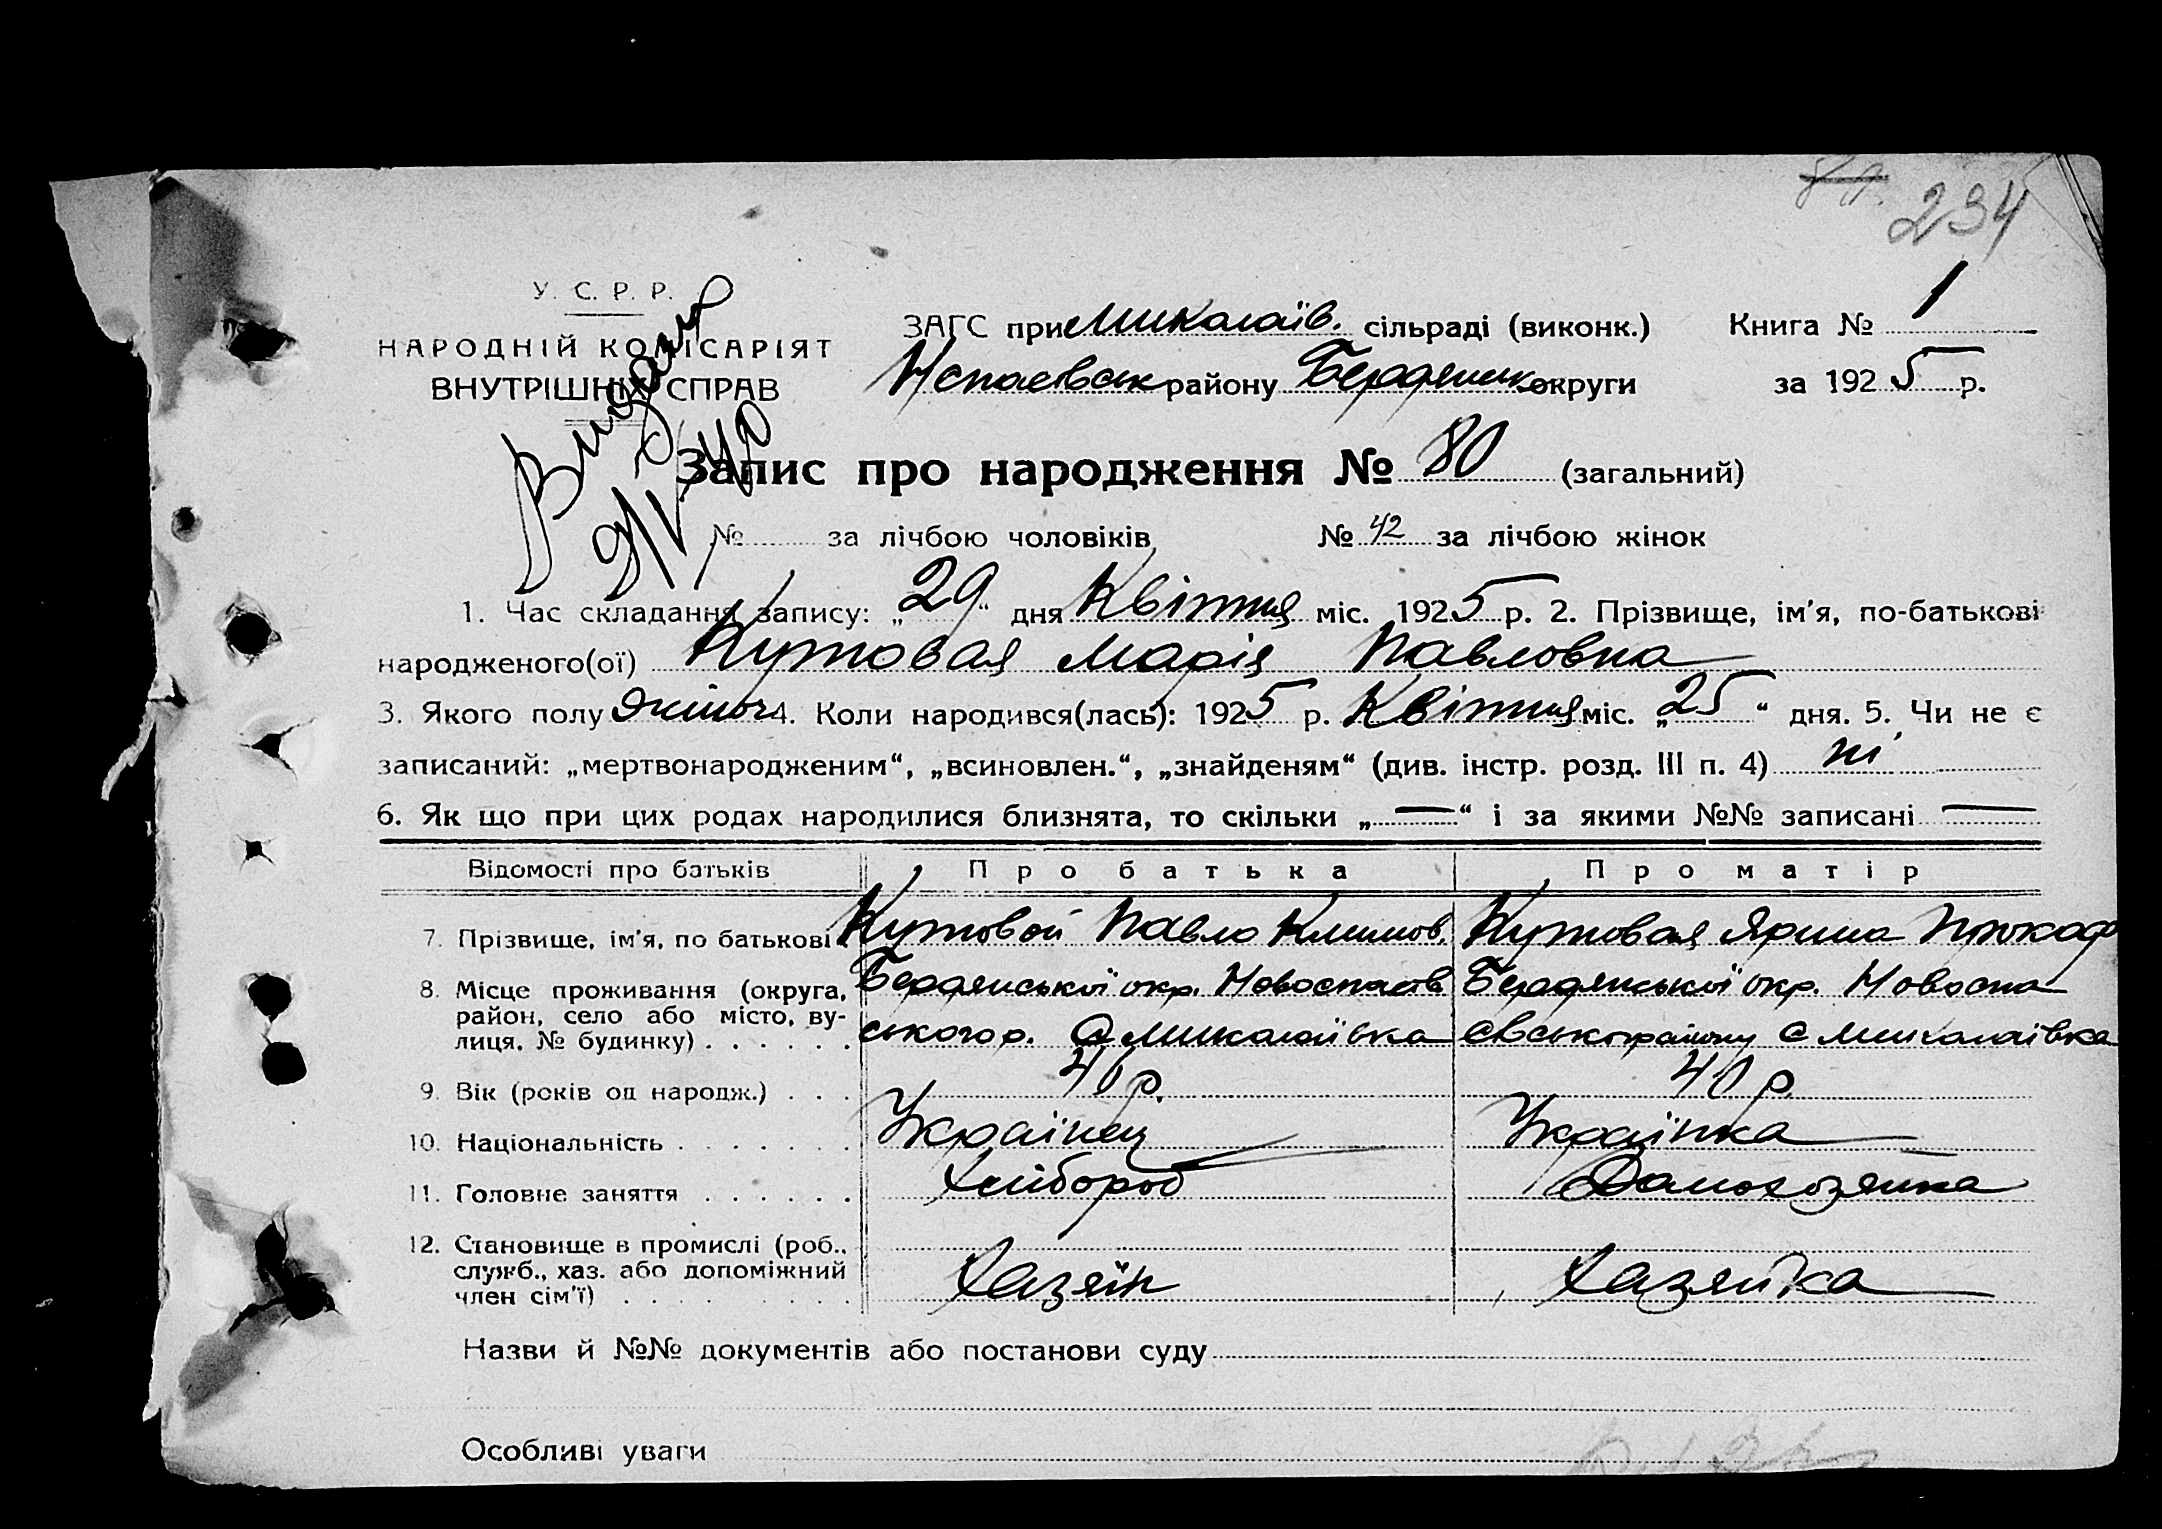 234
У. С. Р. Р.
НАРОДНІЙ КОМІСАРІЯТ
ВНУТРІШНІХ СПРАВ
Видан
ЗАГС при Миколаїв. сільраді (виконк.) Книга № 1
Нспаєвськ району Бердянськ округи за 1925 р.
Запис про народження № 80 (загальний)
№ за лічбою чоловіків № 42 за лічбою жінок
1. Час складання запису: „29“ дня Квітня міс. 1925 р. 2. Прізвище, ім'я, по-батькові
народженого(ої) Кутовая Марія Павловна
3. Якого полу жіноч 4. Коли народився(лась): 1925 р. Квітня міс. „25“ дня. 5. Чи не є
записаний: „мертвонародженим“, „всиновлен.“, „знайденям“ (див. інстр. розд. III п. 4) ні
6. Як що при цих родах народилися близнята, то скільки „—“ і за якими №№ записані —
Відомості про батьків Про батька Про матір
7. Прізвище, ім'я, по батькові Кутовой Павло Климов. Кутовая Ярина Прокоф
8. Місце проживання (округа, Бердянської окр. Новоспаєв Бердянської окр. Новоспа
район, село або місто, ву-
лиця, № будинку) . . . . . . ського р. с Миколаївка євського району с Миколаївка
9. Вік (років од народж.) . . . 40 р. 40 р.
10. Національність . . . . . . . Українец Українка
11. Головне заняття . . . . . . Хлібороб Домохозяйка
12. Становище в промислі (роб.,
служб., хаз. або допоміжний
член сім'ї) . . . . . . . . . Хазяїн Хазяйка
Назви й №№ документів або постанови суду
Особливі уваги